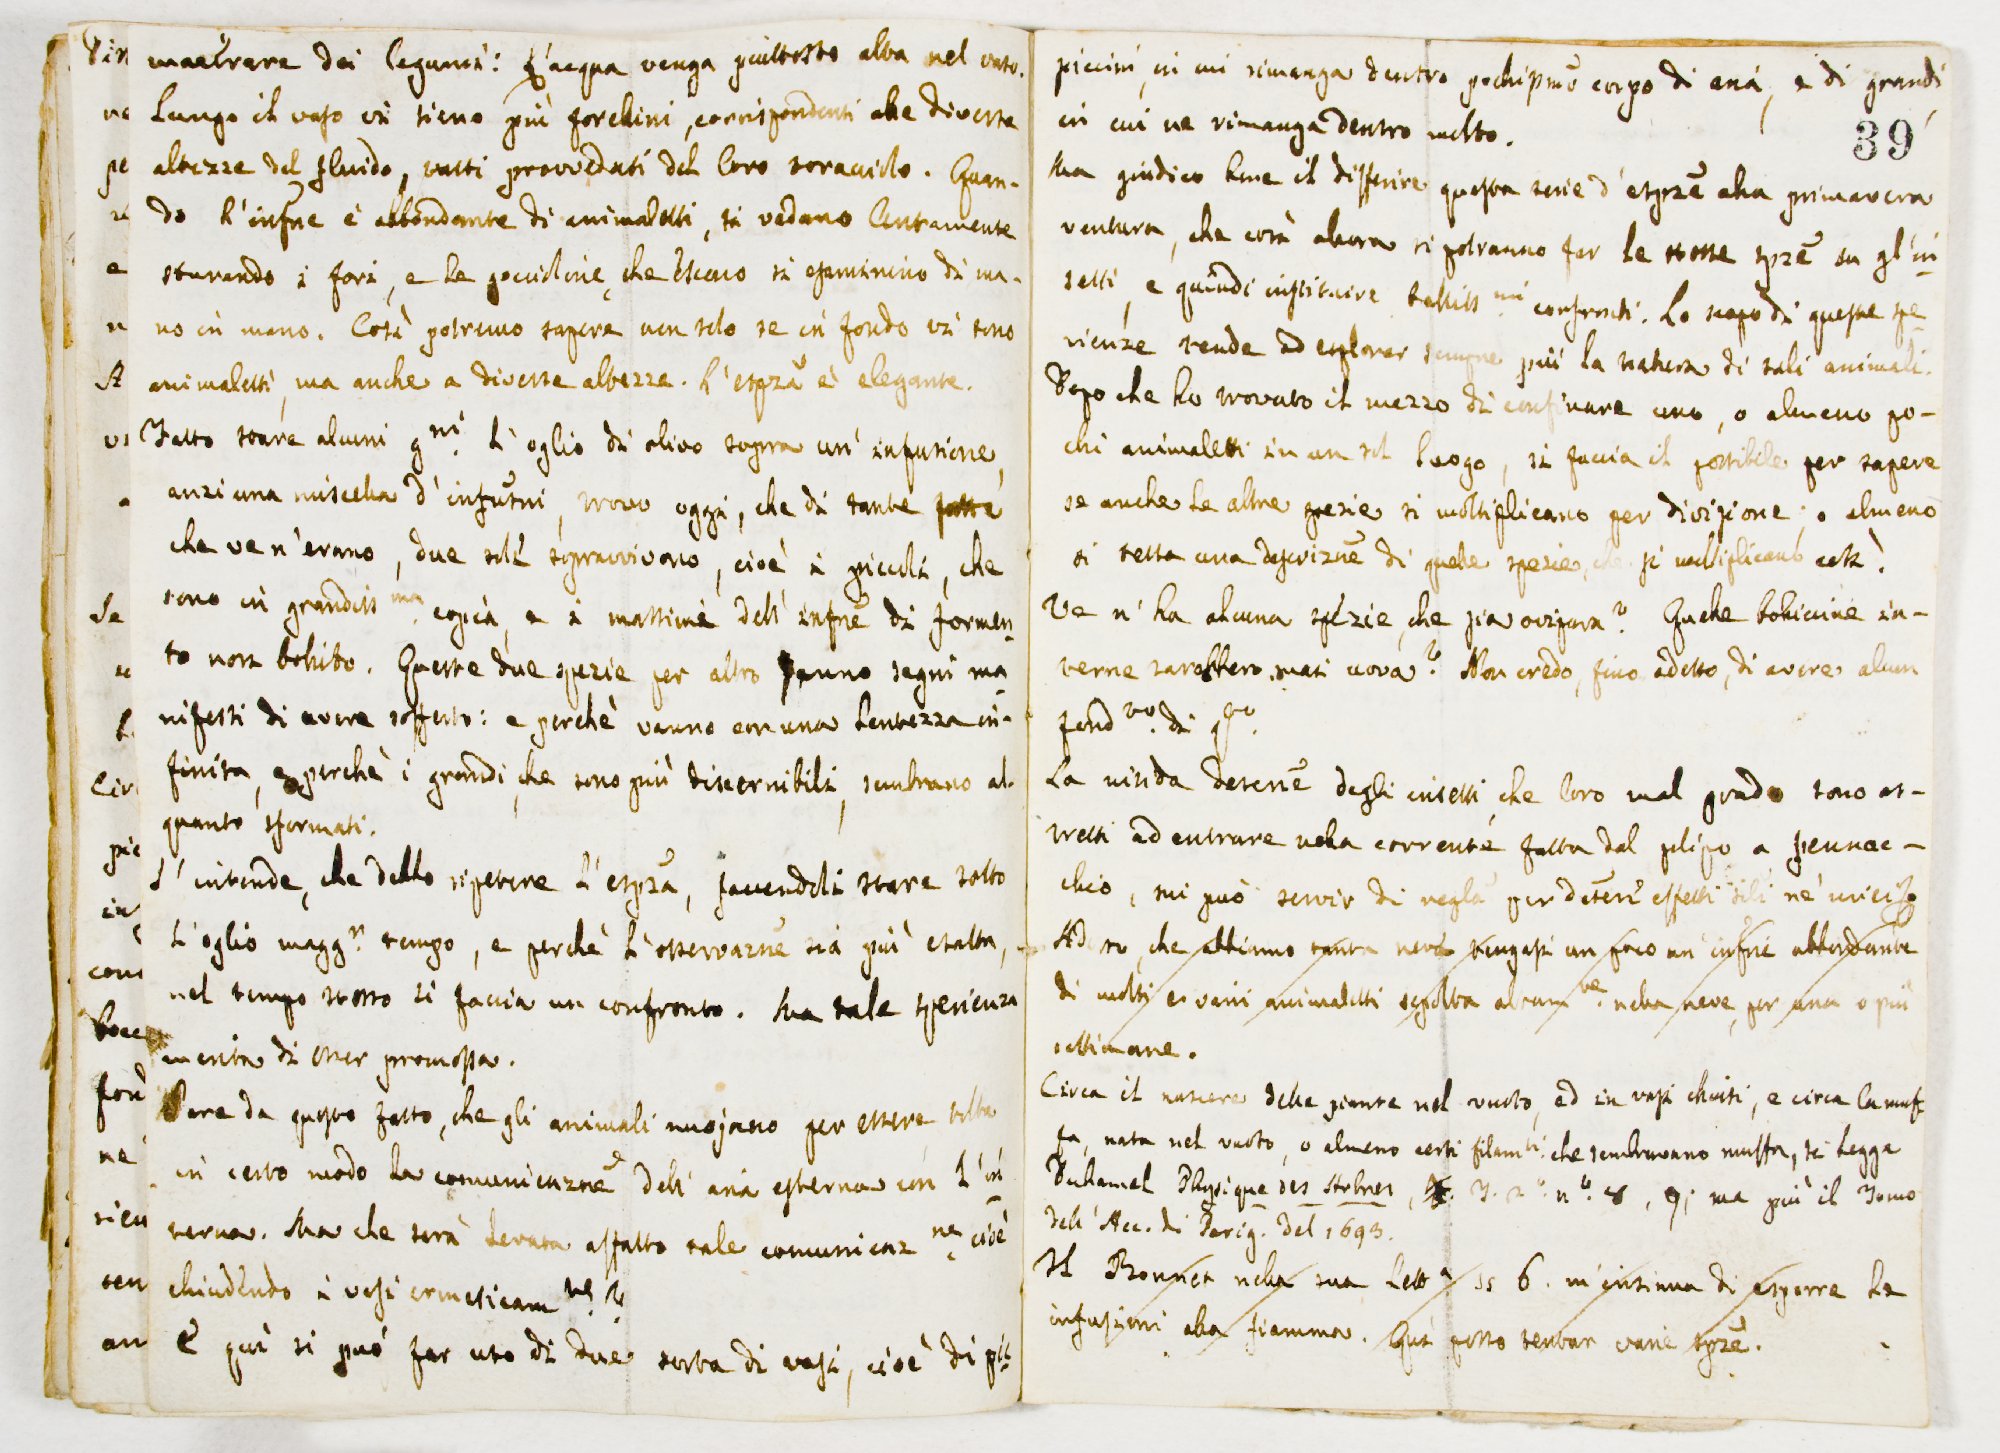 macerare dei legumi: L'acqua venga piuttosto alta nel vaso.
Lungo il vaso vi sieno più forellini, corrispondenti alle diverse
altezze del fluido, tutti provveduti del loro toracciolo. Quan-
do l'infne è abbondante di animaletti, si vadano lentamente
sturando i fori, e le goccioline, che escono si esaminino di ma-
no in mano. Così potremo sapere non solo se in fondo vi sono
animaletti, ma anche a diverse altezze. L'espza è elegante.
Fatto stare alcuni gni. l'oglio di olivo sopra un'infusione,
anzi una miscella d'infusni, trovo oggi, che di tante fatte
che ve n'erano, due soli sopravvivono, cioè i piccoli, che
sono in grandiss.ma copia, e i massimi dell'infne di formen-
to non bollito. Queste due spezie per altro fanno segni ma
nifesti di avere sofferto: e perchè vanno con una lentezza in-
finita, e perchè i grandi, che sono più discernibili, sembrano al-
quanto sformati.
S'intende, che debbo ripetere l'espza, facendoli stare sotto
l'oglio magg.r tempo, e perchè l'osservazne sia più esatta,
nel tempo stesso si faccia un confronto. Ma tale sperienza
merita di esser promossa.
Pare da questo fatto, che gli animali muojano per essere tolta
in certo modo la comunicazne dell'aria esterna con l'in
terna. Ma che sarà levata affatto tale comunicaz.ne cioè
chiudendo i vasi ermeticam.te?
E quì si può far uso di due sorta di vasi, cioè di pic-
piccini, in cui rimanga dentro pochissmo corpo di aria, e di grandi
in cui ne rimanga dentro molto.
39
Ma giudico bene il differire questa serie d'espze alla primavera
ventura, che così allora si potranno far le stesse spze su gl'in
setti, e quindi instituire belliss.mi confronti. Lo scopo di queste spe
rienze tende ad esplorar sempre più la natura di tali animali.
Dopo che ho trovato il mezzo di confinare uno, o almeno po-
chi animaletti in un sol luogo, si faccia il possibile per sapere
se anche le altre spezie si moltiplicano per divisione; o almeno
si tessa una descrizne di quelle spezie, che si moltiplicano così.
Ve n'ha alcuna spezie, che sia ovipara? Quelle bollicine in-
terne sarebbero mai uova? Non credo, fino adesso, di avere alcun
fond.to di qto.
La nitida descrne degli insetti, che loro mal grado sono as-
tretti ad entrare nella corrente fatta dal polipo a pennac-
chio, mi può servir di regla per descri effetti sili ne' miei
Adesso, che abbiamo tanta neve tengasi un foco un'infne abbondante
di molti e varii animaletti sepolta alcam.te nella neve, per una o più
settimane.
Circa il nascere delle piante nel vuoto, ed in vasi chiusi, e circa la muf-
fa, nata nel vuoto, o almeno certi filam.ti che sembravano muffa, si legga
Duhamel Physique des Arbres, T. 2o. no. 8, 9; ma più il Tomo
dell'Acc. di Parig. del 1693.
Il Bonnet nella sua Lett.a 6. m'insinua di esporre le
infusioni alla fiamma. Quì posso tentar varie spze.